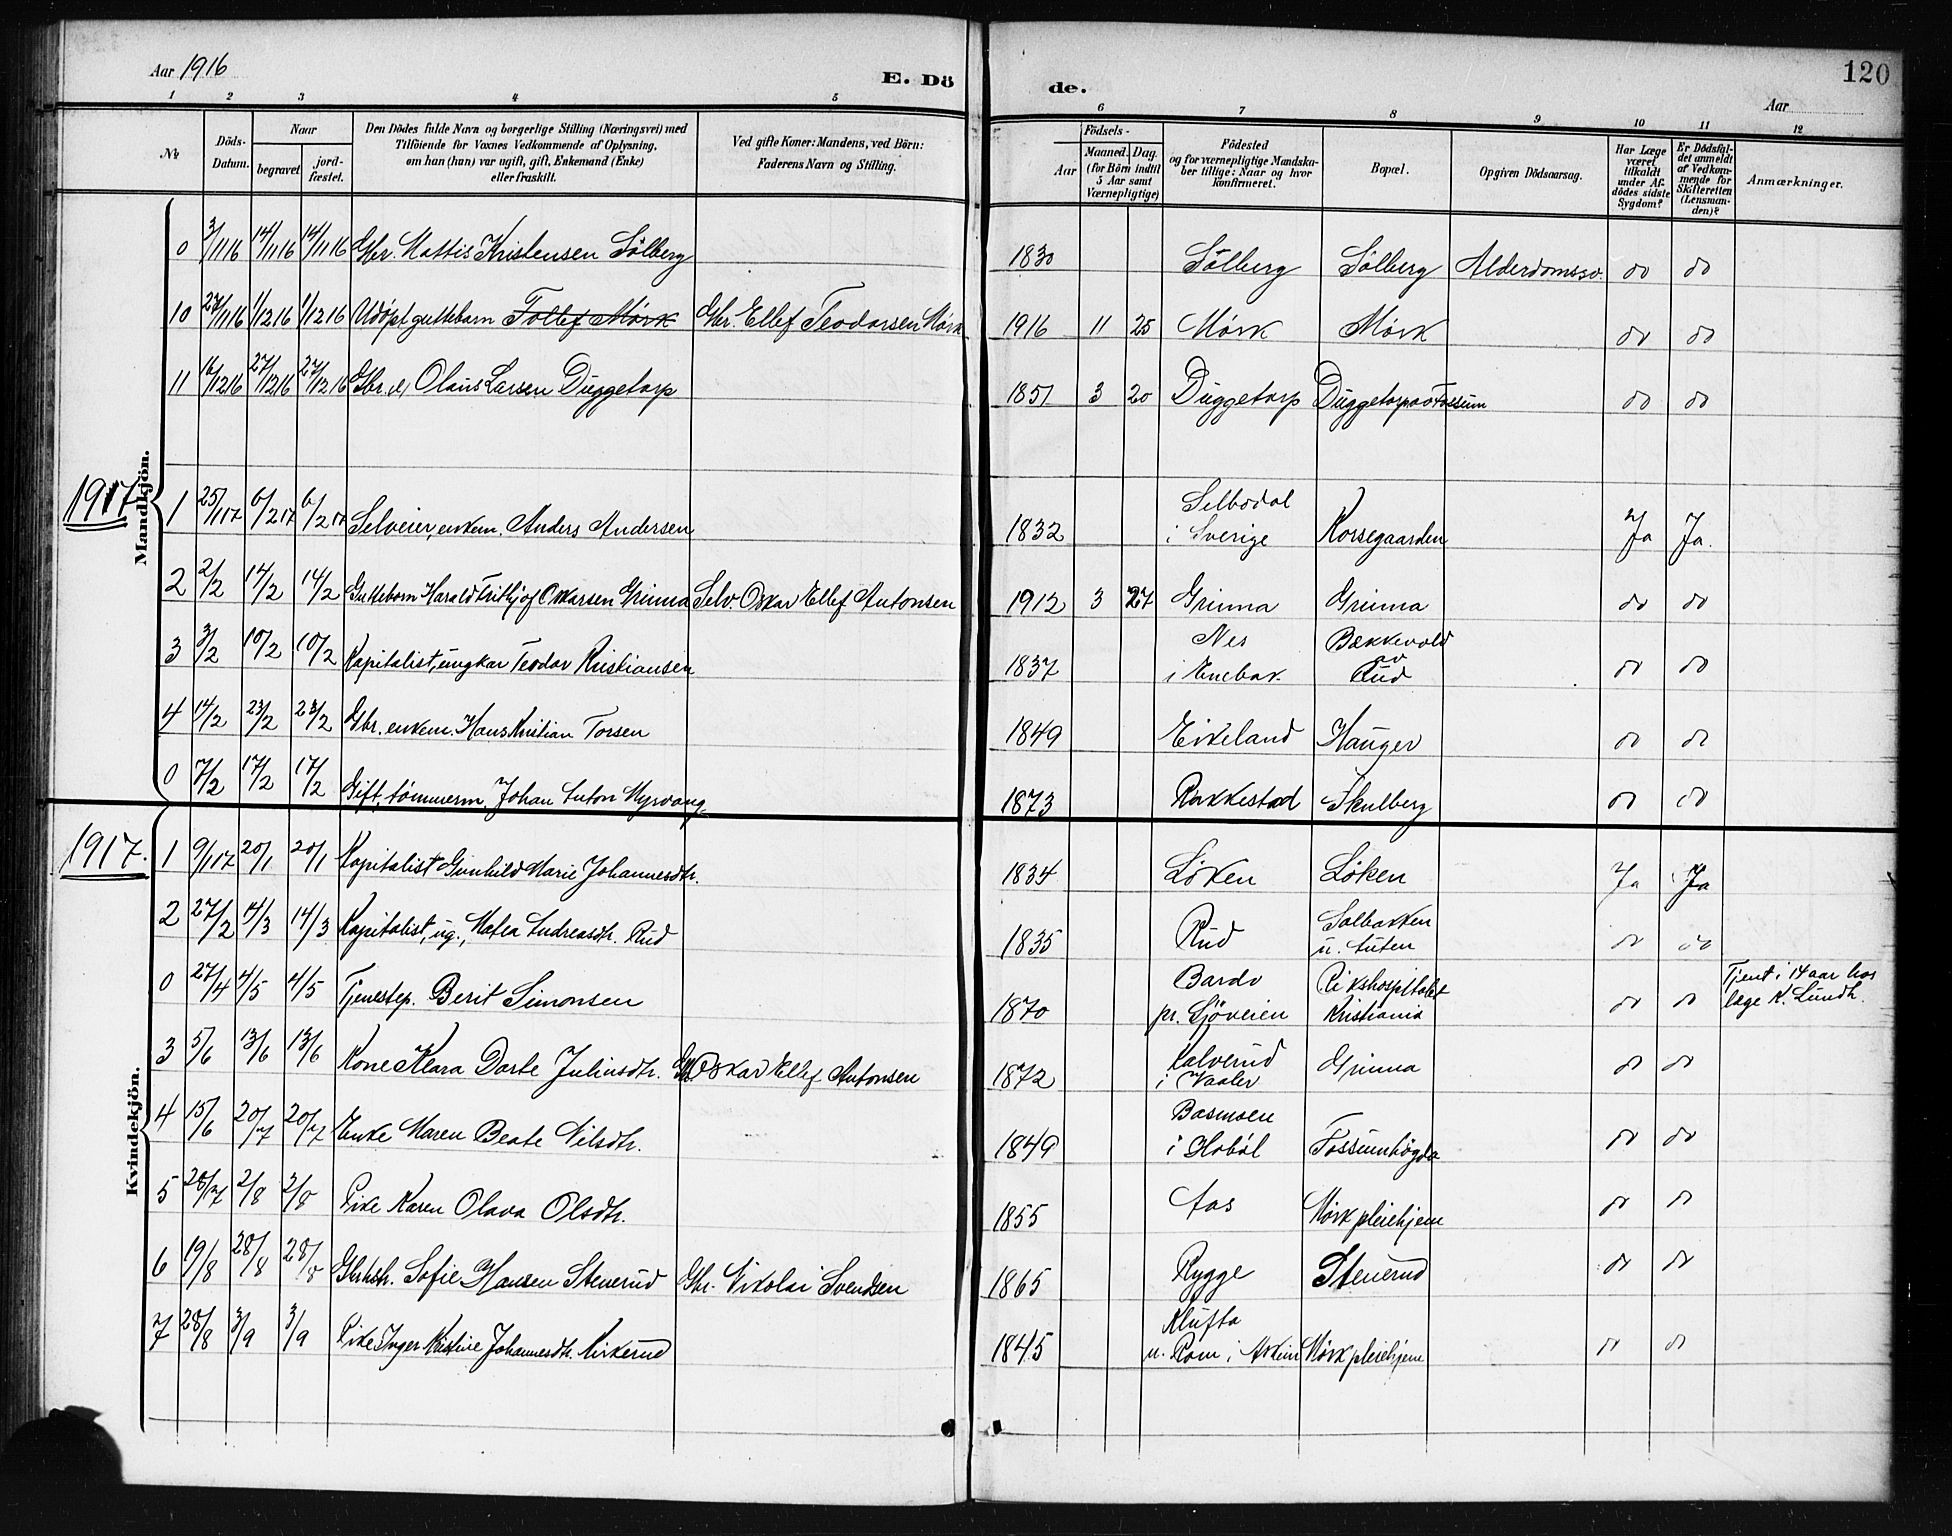 Aar 1916 E. Dö de. Aar 120
1 2 3 4 5 6 7 8 9 10 11 12
No. Döds-Datum. Naar begravet jord-fæstet. Den Dödes fulde Navn og borgerlige Stilling (Næringsvei) med Tilföiende for Voxnes Vedkommende af Oplysning, om han (hun) var ugift, gift, Enkemand (Enke) eller fraskilt. Ved gifte Koner: Mandens, ved Börn: Faderens Navn og Stilling. Födsels- Aar Maaned. Dag. (for Börn indtil 5 Aar samt Værnepligtige) Födested og for værnepligtige Mandskaber tillige: Naar og hvor konfirmeret. Bopæl. Opgiven Dödsaarsag. Har Læge været tilkaldt under Afdödes sidste Sygdom? Er Dödsfaldet anmeldt af Vedkommende for Skifteretten (Lensmanden)? Anmærkninger.
Mandkjön.
0 3/11 16 14/11 16 14/11 16 Gbr. Mattis Kristensen Sölberg 1830 Sölberg Sölberg Alderdomssv. do do
10 27/11 16 1/12 16 1/12 16 Udöpt guttebarn Tollef Mörk Gbr. Ellef Teodorsen Mörk 1916 11 25 Mörk Mörk do do
11 16/12 16 27/12 16 27/12 16 Gbr. Olaus Larsen Duggetorp 1851 3 20 Duggetorp Duggetorp av Fossum do do
1917
1 25/1 17 6/2 17 6/2 17 Selveier, enkem. Anders Andersen 1832 Selbodal i Sverige Korsegaarden Ja Ja.
2 2/2 14/2 14/2 Guttebarn Harald Fritjof Oskarsen Grinna Selv. Oskar Ellef Antonsen 1912 3 27 Grinna Grinna do do
3 3/2 10/2 10/2 Kapitalist, ungkar Teodor Kristiansen 1837 Nes i Enebak. Bækkevold av Rud do do
4 14/2 23/2 23/2 Gbr. enkem. Hans Kristian Torsen 1849 Eikeland Hauger do do
0 7/2 17/2 17/2 Gift, tömmerm. Johan Anton Myrvang 1873 Rakkestad Skulberg do do
1917.
Kvindekjön.
1 9/1 17 20/1 20/1 Kapitalist Gunhild Marie Johannesdtr. 1834 Löken Löken Ja Ja
2 27/2 14/3 14/3 Kapitalist, ug., Matea Andreasdtr. Rud 1835 Rud Solbakken u. Auten do do
0 27/4 4/5 4/5 Tjenestep. Berit Simonsen 1870 Bardo pr. Sjöveien Rikshospitalet Kristiania do do Tjent i 14 aar hos læge K. Lundh.
3 5/6 13/6 13/6 Kone Klara Dorte Juliusdtr. Gbr. Oskar Ellef Antonsen 1872 Kalverud i Vaaler Grinna do do
4 15/6 20/7 20/7 Enke Maren Beate Nilsdtr. 1849 Basmoen i Hobøl Fossumhögda do do
5 28/7 2/8 2/8 Pike Karen Olava Olsdtr. 1855 Aas Mörk pleiehjem do do
6 19/8 28/8 28/8 Gbrhstr. Sofie Hansen Stenerud Gbr. Nikolai Svendsen 1865 Rygge Stenerud do do
7 28/8 3/9 3/9 Pike Inger Kristine Johannesdtr. Kirkerud 1845 Klufta u. Rom i Askim Mörk pleiehjem do do